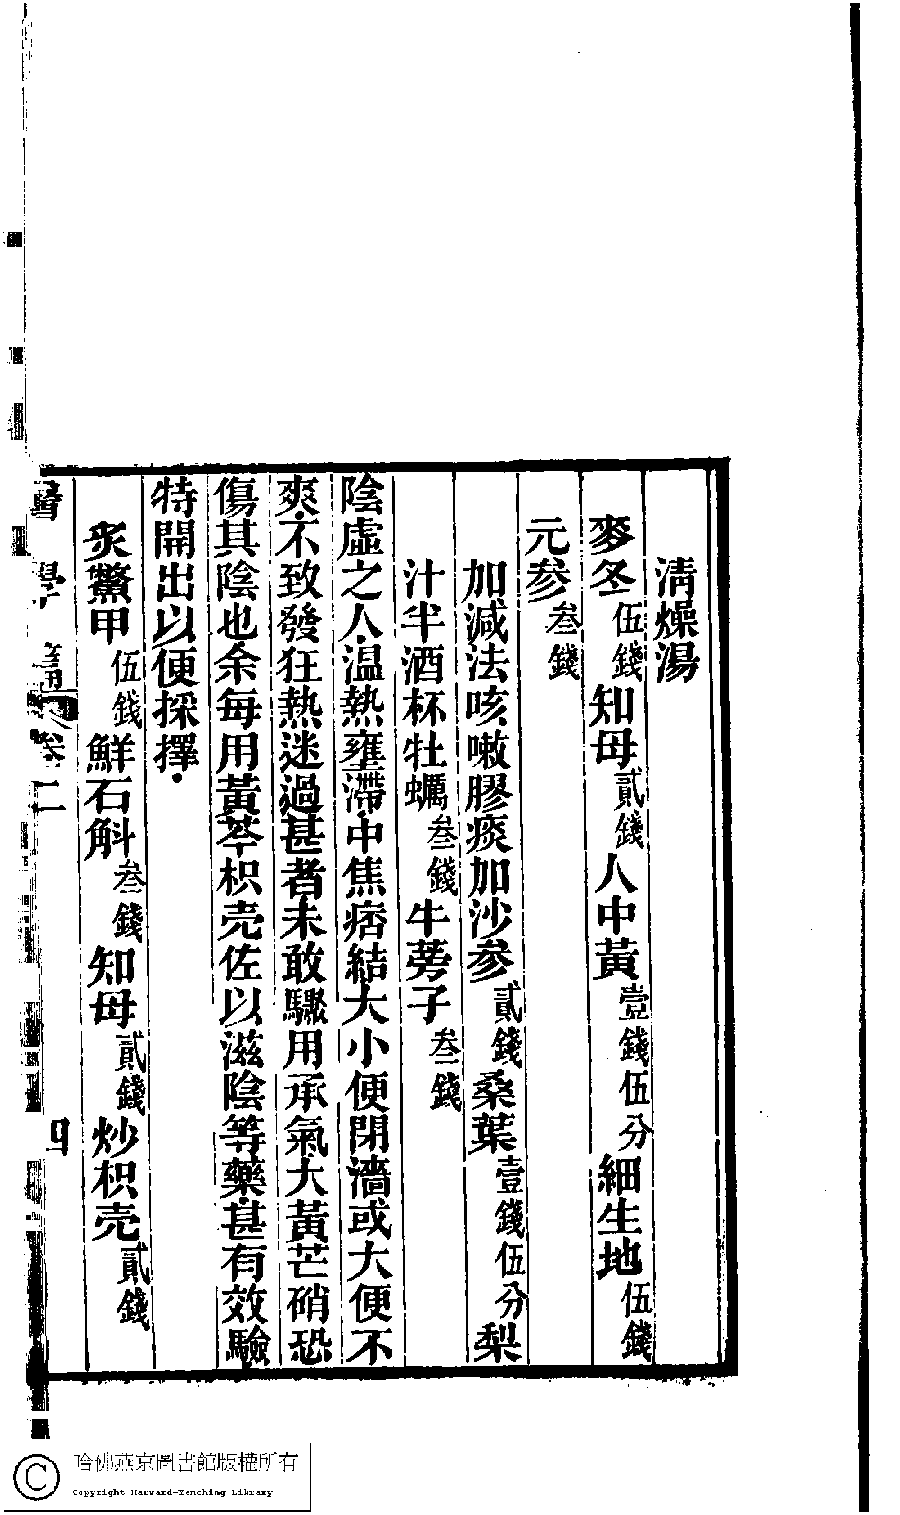 清燥湯
麥冬伍錢知母貳錢人中黃壹錢伍分細生地伍錢
元参叁錢
加減法咳嗽膠痰加沙参貳錢桑葉壹錢伍分梨
汁半酒杯牡蠣叁錢牛蒡子叁錢
陰虛之人溫熱壅滯中焦痞結大小便閉濇或大便不
爽不致發狂熱迷過甚者未敢驟用承氣大黃芒硝恐
傷其陰也余每用黃芩枳壳佐以滋陰等藥甚有效驗
特開出以便採擇
炙鱉甲伍錢鮮石斛叁錢知母貳錢炒枳壳貳錢
卷二
四
哈佛燕京圖書館版權所有
Copyright Harvard-Yenching Library